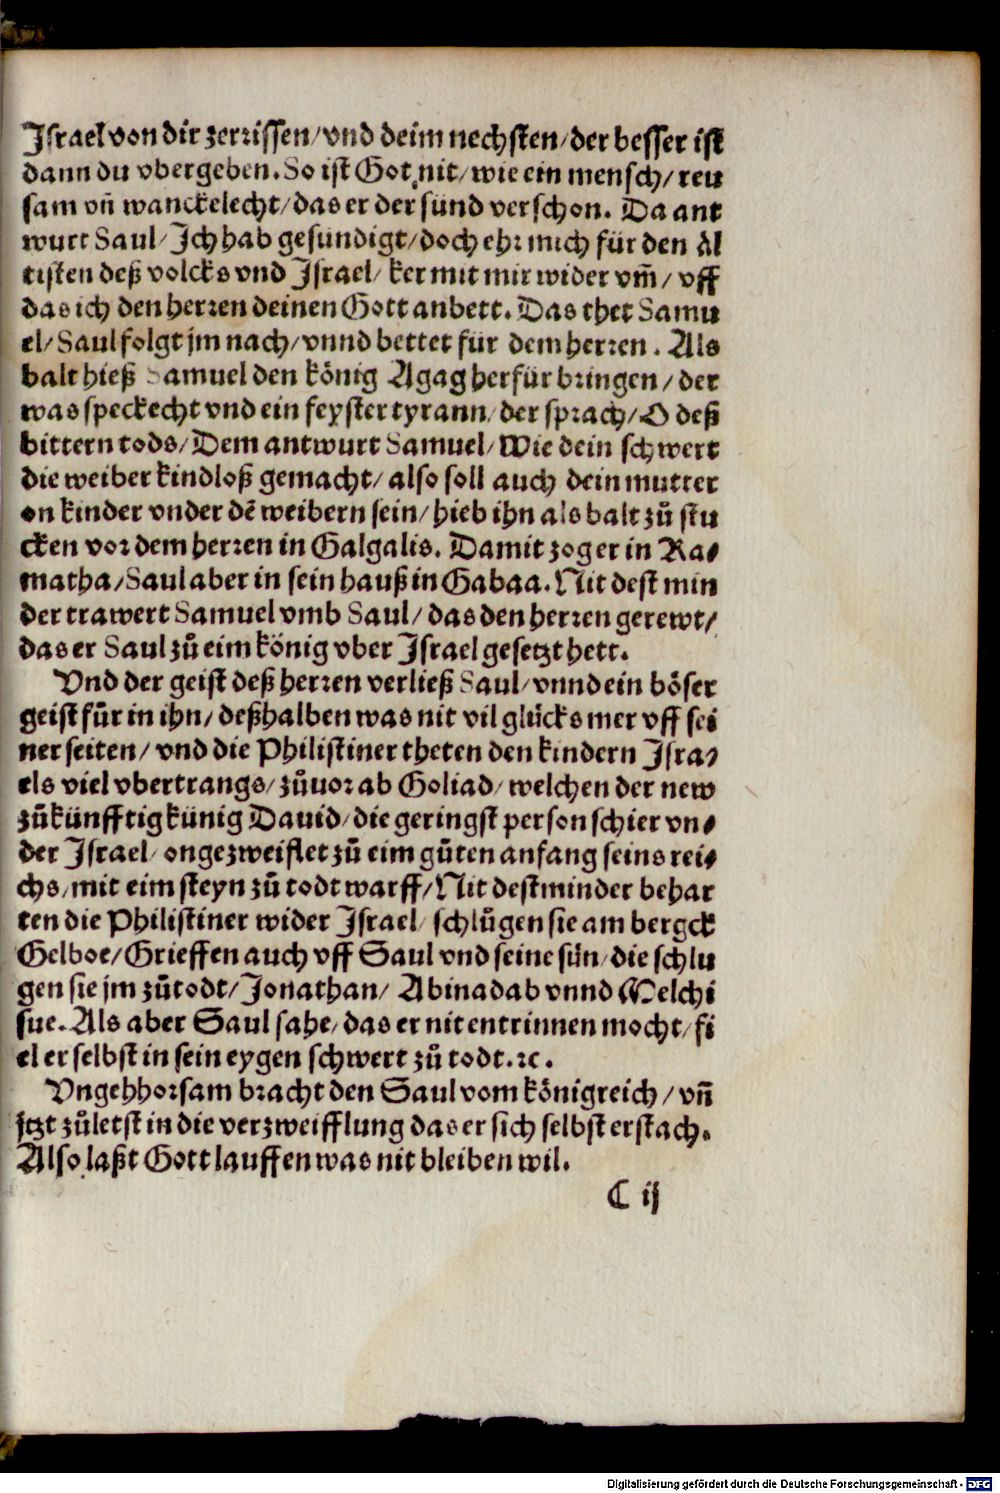 Israel von dir zerrissen/ vnd deim nechsten/ der besser ist
dann du vbergeben. So ist Got nit/ wie ein mensch/ reu
sam vñ wanckelecht/ das er der sünd verschon. Da ant
wurt Saul/ Ich hab gesundigt/ doch ehr mich für den ål
tisten deß volcks vnd Israel/ ker mit mir wider vm̃/ vff
das ich den herren deinen Gott anbett. Das thet Samu
el/ Saul folgt jm nach/ vnnd bettet für dem herren. Als
balt hieß Samuel den kőnig Agag herfür bringen/ der
was speckecht vnd ein feyster tyrann/ der sprach/ O deß
bittern tods/ Dem antwurt Samuel/ Wie dein schwert
die weiber kindloß gemacht/ also soll auch dein mutter
on kinder vnder dē weibern sein/ hieb ihn als balt zů stu
cken vor dem herren in Galgalis. Damit zoger in Ra⸗
matha/ Saul aber in sein hauß in Gabaa. Nit dest min
der trawert Samuel vmb Saul/ das den herren gerewt/
das er Saul zů eim kőnig vber Israel gesetzt hett.
Vnd der geist deß herren verließ Saul/ vnnd ein bőser
geist fůr in ihn/ deßhalben was nit vil glücks mer vff sei
ner seiten/ vnd die Philistiner theten den kindern Isra⸗
els viel vbertrangs/ zůuor ab Goliad/ welchen der new
zůkünfftig künig Dauid/ die geringst person schier vn⸗
der Israel/ ongezweiflet zů eim gůten anfang seins rei⸗
chs/ mit eim steyn zů todt warff/ Nit destminder behar
ten die Philistiner wider Israel/ schlůgen sie am bergck
Gelboe/ Grieffen auch vff Saul vnd seine sün/ die schlu
gen sie jm zů todt/ Jonathan/ Abinadab vnnd Melchi
sue. Als aber Saul sahe/ das er nit entrinnen mocht/ fi
el er selbst in sein eygen schwert zů todt. ꝛc.
Vngehhorsam bracht den Saul vom kőnigreich/ vñ
jtzt zůletst in die verzweifflung das er sich selbst erstach.
Also laßt Gott lauffen was nit bleiben wil.
C ij
Digitalisierung gefördert durch die Deutsche Forschungsgemeinschaft - DFG